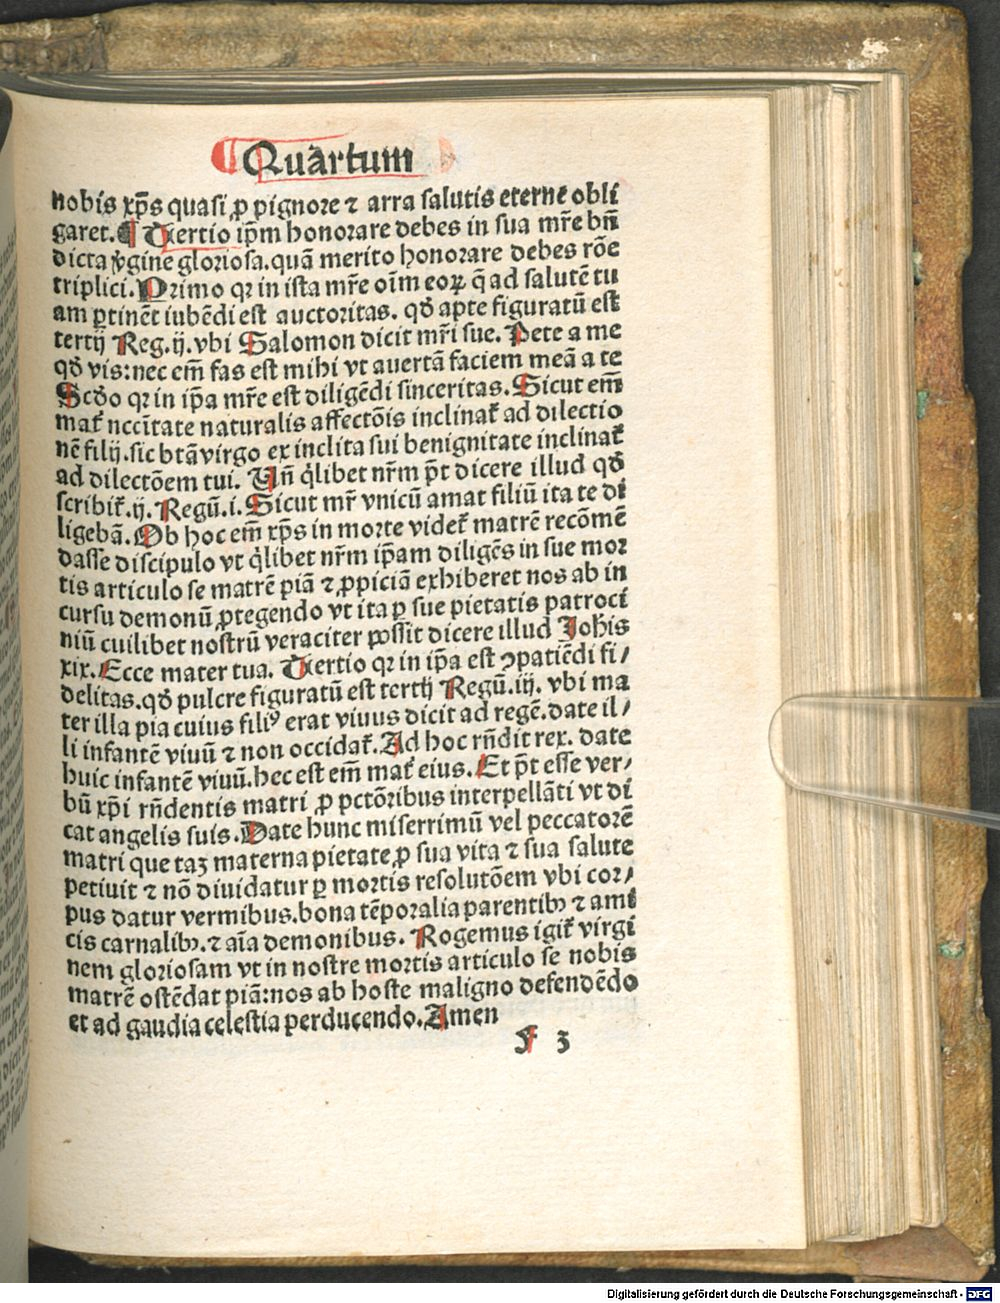 Quartum
nobis xp̄s quasi ꝓ pignore ⁊ arra salutis eterne obli
garet. ¶ Tertio ip̄m honorare debes in sua mr̄e bn̄
dicta ꝟgine gloriosa. quā merito honorare debes rōe
triplici. Primo qꝛ in ista mr̄e oīm eoꝝ q̄ ad salutē tu
am ꝑtinēt iubēdi est auctoritas. qd̄ apte figuratū est
tertij Reg. ij. vbi Salomon dicit mr̄i sue. Pete a me
qd̄ vis: nec em̄ fas est mihi vt auertā faciem meā a te
Scd̄o qꝛ in ip̄a mr̄e est diligēdi sinceritas. Sicut em̄
mat̄ nccītate naturalis affectōis inclinat̄ ad dilectio
nē filij. sic btā virgo ex inclita sui benignitate inclinat̄
ad dilectōem tui. Un̄ q̇libet nr̄m p̄t dicere illud qd̄
scribit̄. ij. Regū. i. Sicut mr̄ vnicū amat filiū ita te di
ligebā. Ob hoc em̄ xp̄s in morte videt̄ matrē recōmē
dasse discipulo vt q̇libet nr̄m ip̄am diligēs in sue mor
tis articulo se matrē piā ⁊ ꝓpiciā exhiberet nos ab in
cursu demonū ꝓtegendo vt ita ꝑ sue pietatis patroci
niū cuilibet nostrū veraciter possit dicere illud Joh̄is
xix. Ecce mater tua. Tertio qꝛ in ip̄a est ꝯpatiēdi fi/
delitas. qd̄ pulcre figuratū est tertij Regū. iij. vbi ma
ter illa pia cuius filiꝰ erat viuus dicit ad regē. date il/
li infantē viuū ⁊ non occidat̄. Ad hoc rn̄dit rex. date
huic infantē viuū. hec est em̄ mat̄ eius. Et p̄t esse ver/
bū xp̄i rn̄dentis matri ꝓ pctōribus interpellāti vt di
cat angelis suis. Date hunc miserrimū vel peccatorē
matri que taꝫ materna pietate ꝓ sua vita ⁊ sua salute
petiuit ⁊ nō diuidatur ꝑ mortis resolutōem vbi cor/
pus datur vermibus. bona tēporalia parentibꝰ ⁊ ami
cis carnalibꝰ. ⁊ aīa demonibus. Rogemus igit̄ virgi
nem gloriosam vt in nostre mortis articulo se nobis
matrē ostēdat piā: nos ab hoste maligno defendēdo
et ad gaudia celestia perducendo. Amen
f 3
Digitalisierung gefördert durch die Deutsche Forschungsgemeinschaft - DFG